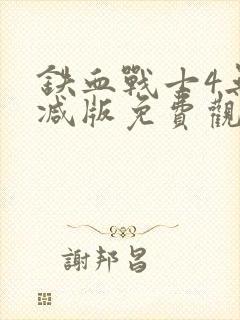 鉄血戰士4無
减版免費觀
謝邦昌